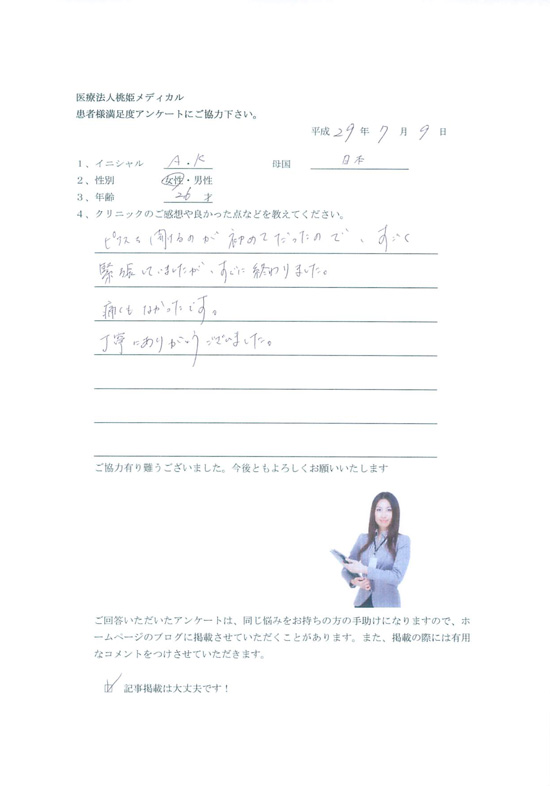 医療法人桃姫メディカル
患者様満足度アンケートにご協力下さい。
平成 29 年 7 月 9 日
1、イニシャル A・K 母国 日本
2、性別 女性・男性
3、年齢 26 才
4、クリニックのご感想や良かった点などを教えてください。
ピアスを開けるのが初めてだったので、すごく
緊張していましたが、すぐに終わりました。
痛くもなかったです。
丁寧にありがとうございました。
ご協力有り難うございました。今後ともよろしくお願いいたします
ご回答いただいたアンケートは、同じ悩みをお持ちの方の手助けになりますので、ホ
ームページのブログに掲載させていただくことがあります。また、掲載の際には有用
なコメントをつけさせていただきます。
記事掲載は大丈夫です！